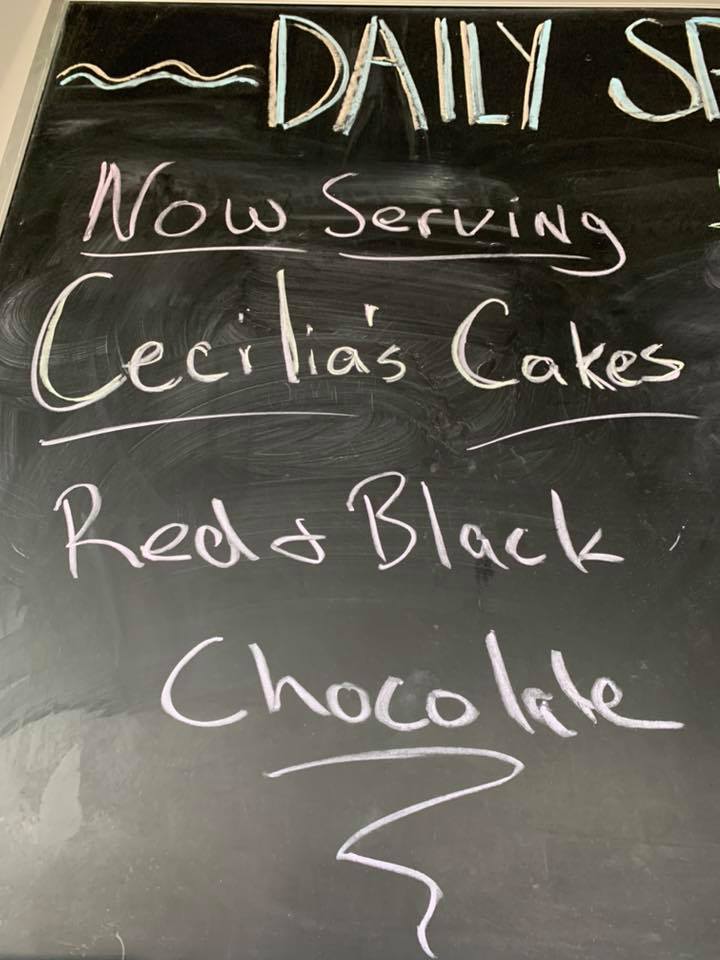 DAILY SP
Now Serving
Cecilia's Cakes
Red & Black
Chocolate